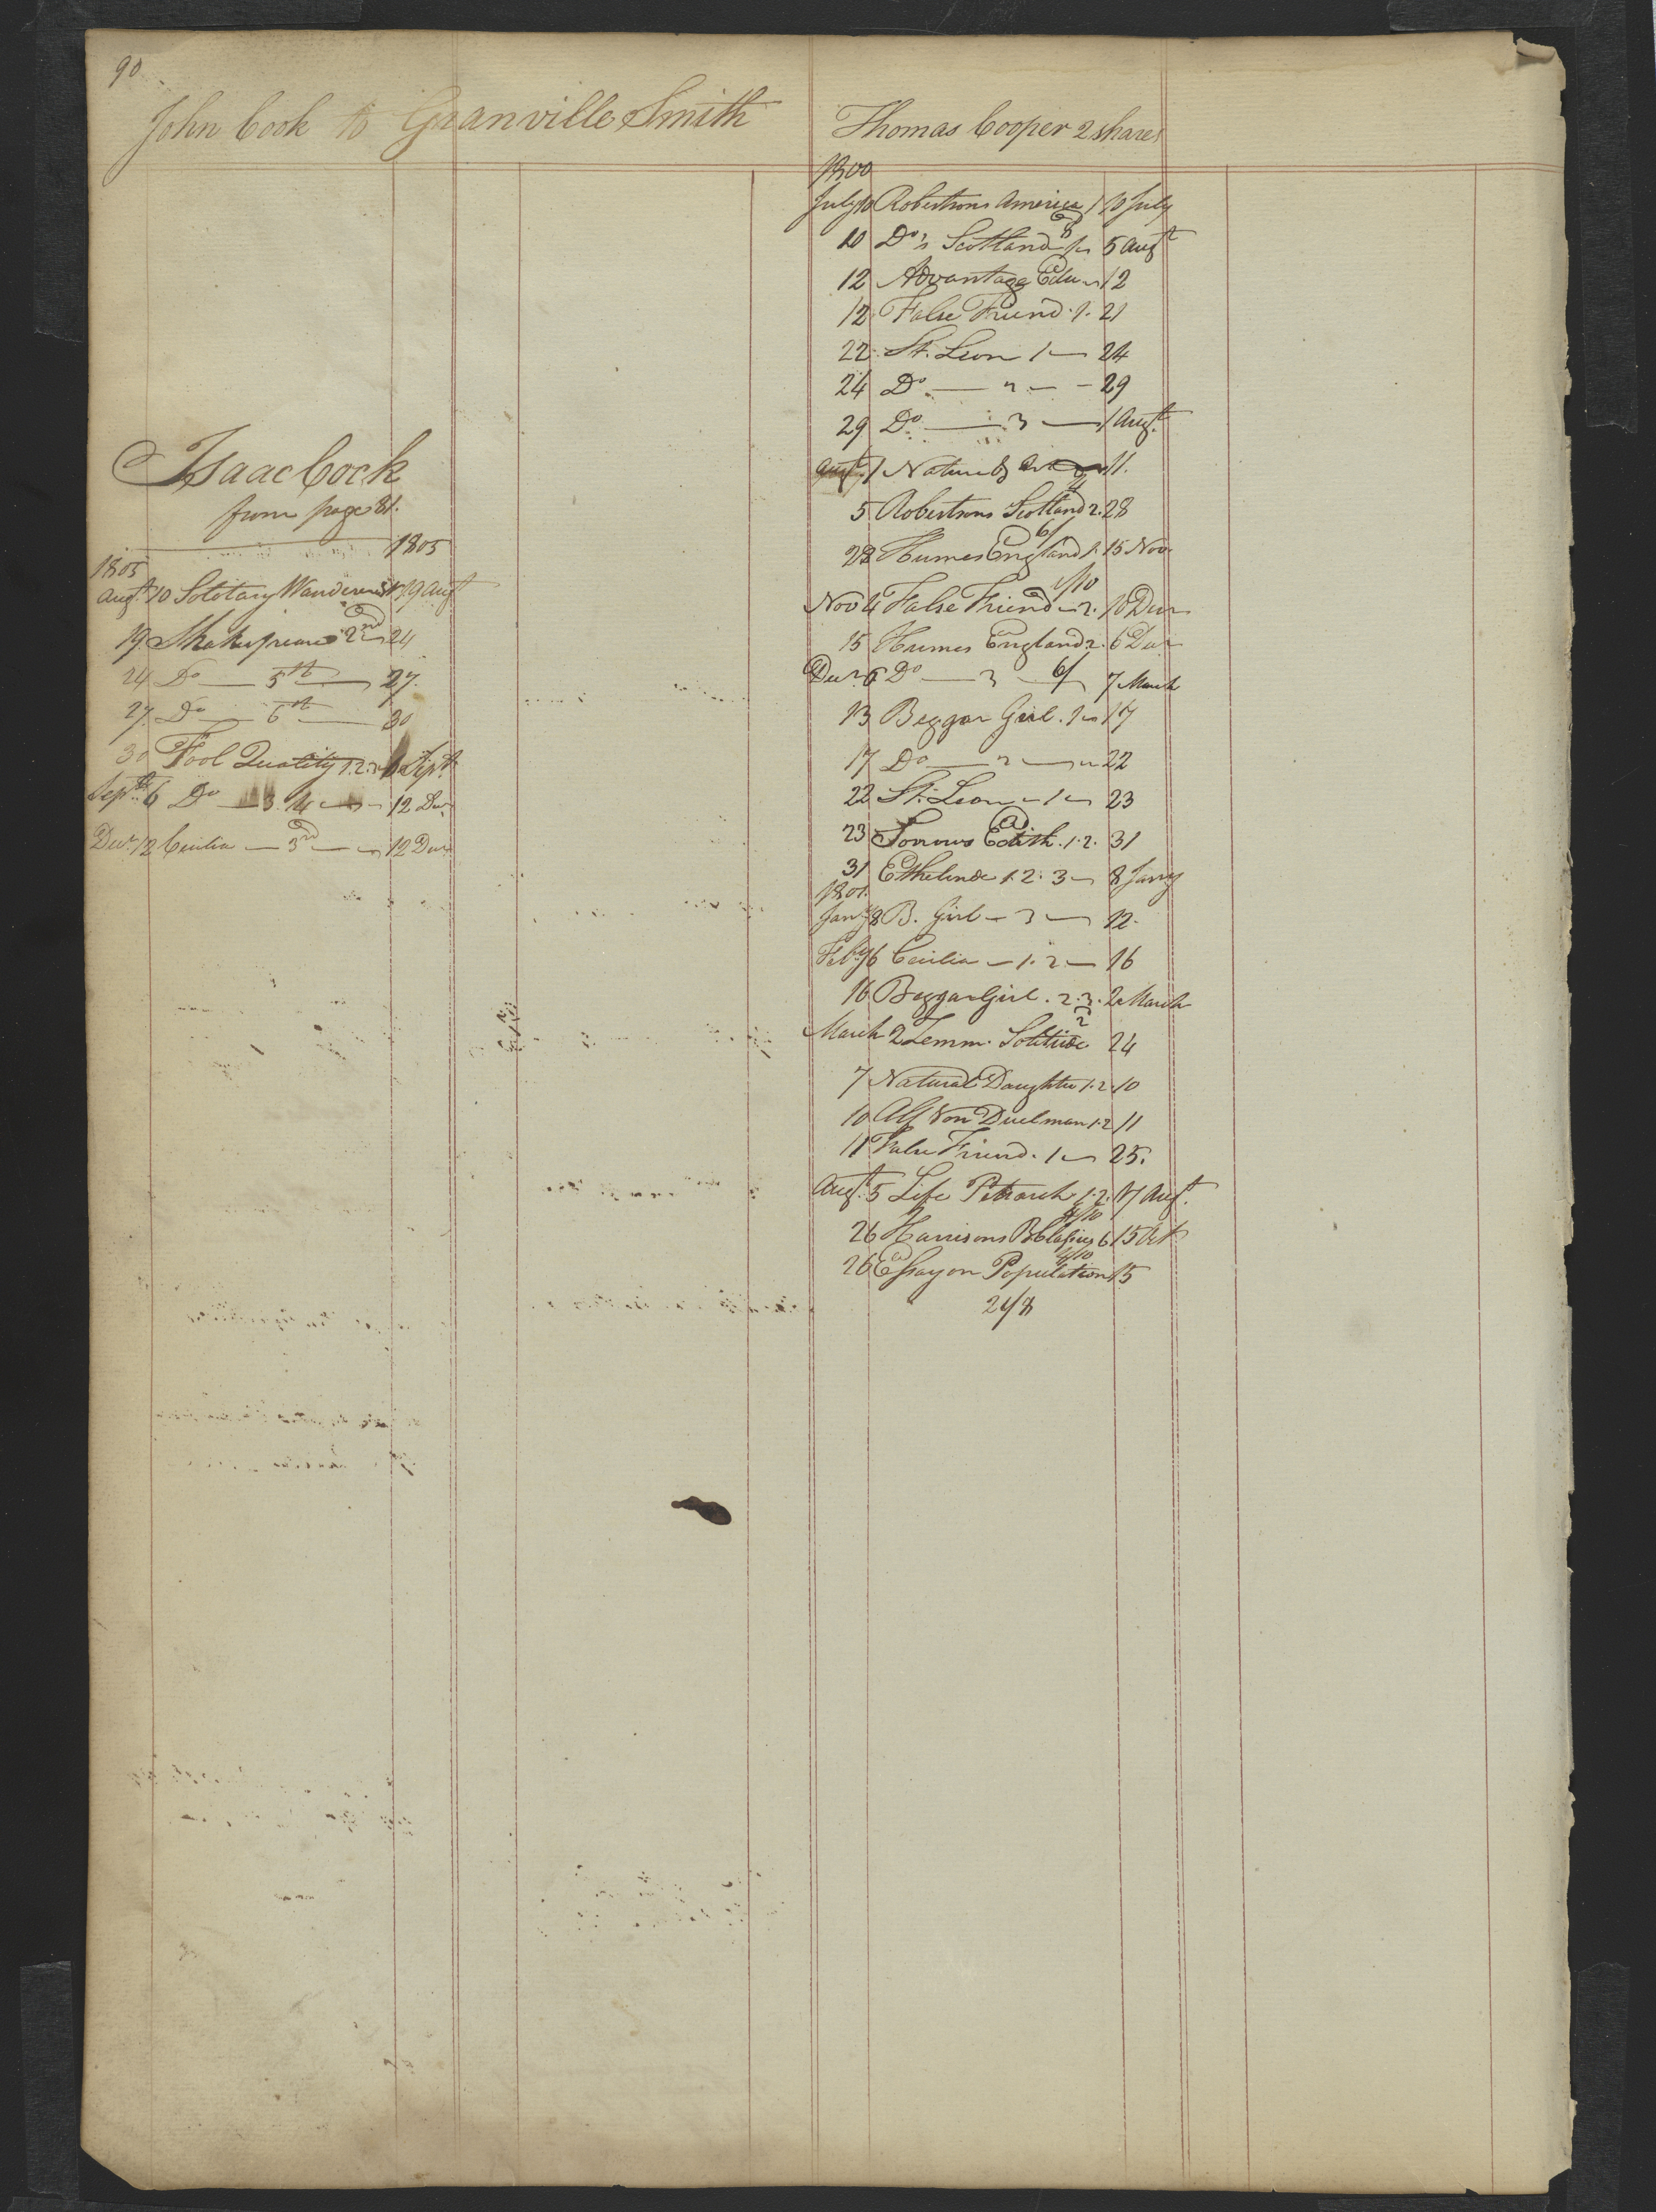 90
John Cook to Granville Smith
Isaac Cock
from page 81.
1805 1805
Augt. 10 Solotary Wanderer 19 Augt
19 Shakespears 2nd 24
24 Do — 5th — 27.
27 Do — 6th — 30
30 Fool Quality 1.2. Sept
Sept. 6 Do — 3. 4 — 12 Decr
Decr. 12 Cecilia — 3rd — 12 Decr
Thomas Cooper 2 shares
1800
July 10 Robertsons America 1 10 July
10 Do's Scotland 1 5 Augt
12 Advantage Edu 12
12 False Friend. 1. 21
22 St. Leon 1 — 24
24 Do — 2 — 29
29 Do — 3 — 1 Augt.
Augt. 1 Nature & Art 11.
5 Robertsons Scotland 2. 28
6/
28 Humes England 1. 15 Nov
1/10
Nov 4 False Friend — 2. 10 Decr
15 Humes England 2. 6 Decr
Decr. 6 Do — 3 — 6/ 7 March
13 Beggar Girl. 1 17
17 Do — 2 — 22
22 St. Leon — 1 — 23
23 Sorrows Edith. 1.2. 31
31 Ethelinde 1. 2. 3 — 8 Jany
1801.
Jany 8 B. Girl — 3 — 12.
Feby 6 Cecilia — 1. 2 — 16
16 Beggar Girl. 2. 3. 2 March
March 2 Zemm. Solitude 2 24
7 Natural Daughter 1.2. 10
10 Alf Von Duelman 1.2 11
11 False Friend. 1 — 25.
Augt. 5 Life Petrarch 1. 2. 17 Augt.
4/10
26 Harrisons B. Classics 6 15 Oct
4/10
26 Essay on Population 15
24/8